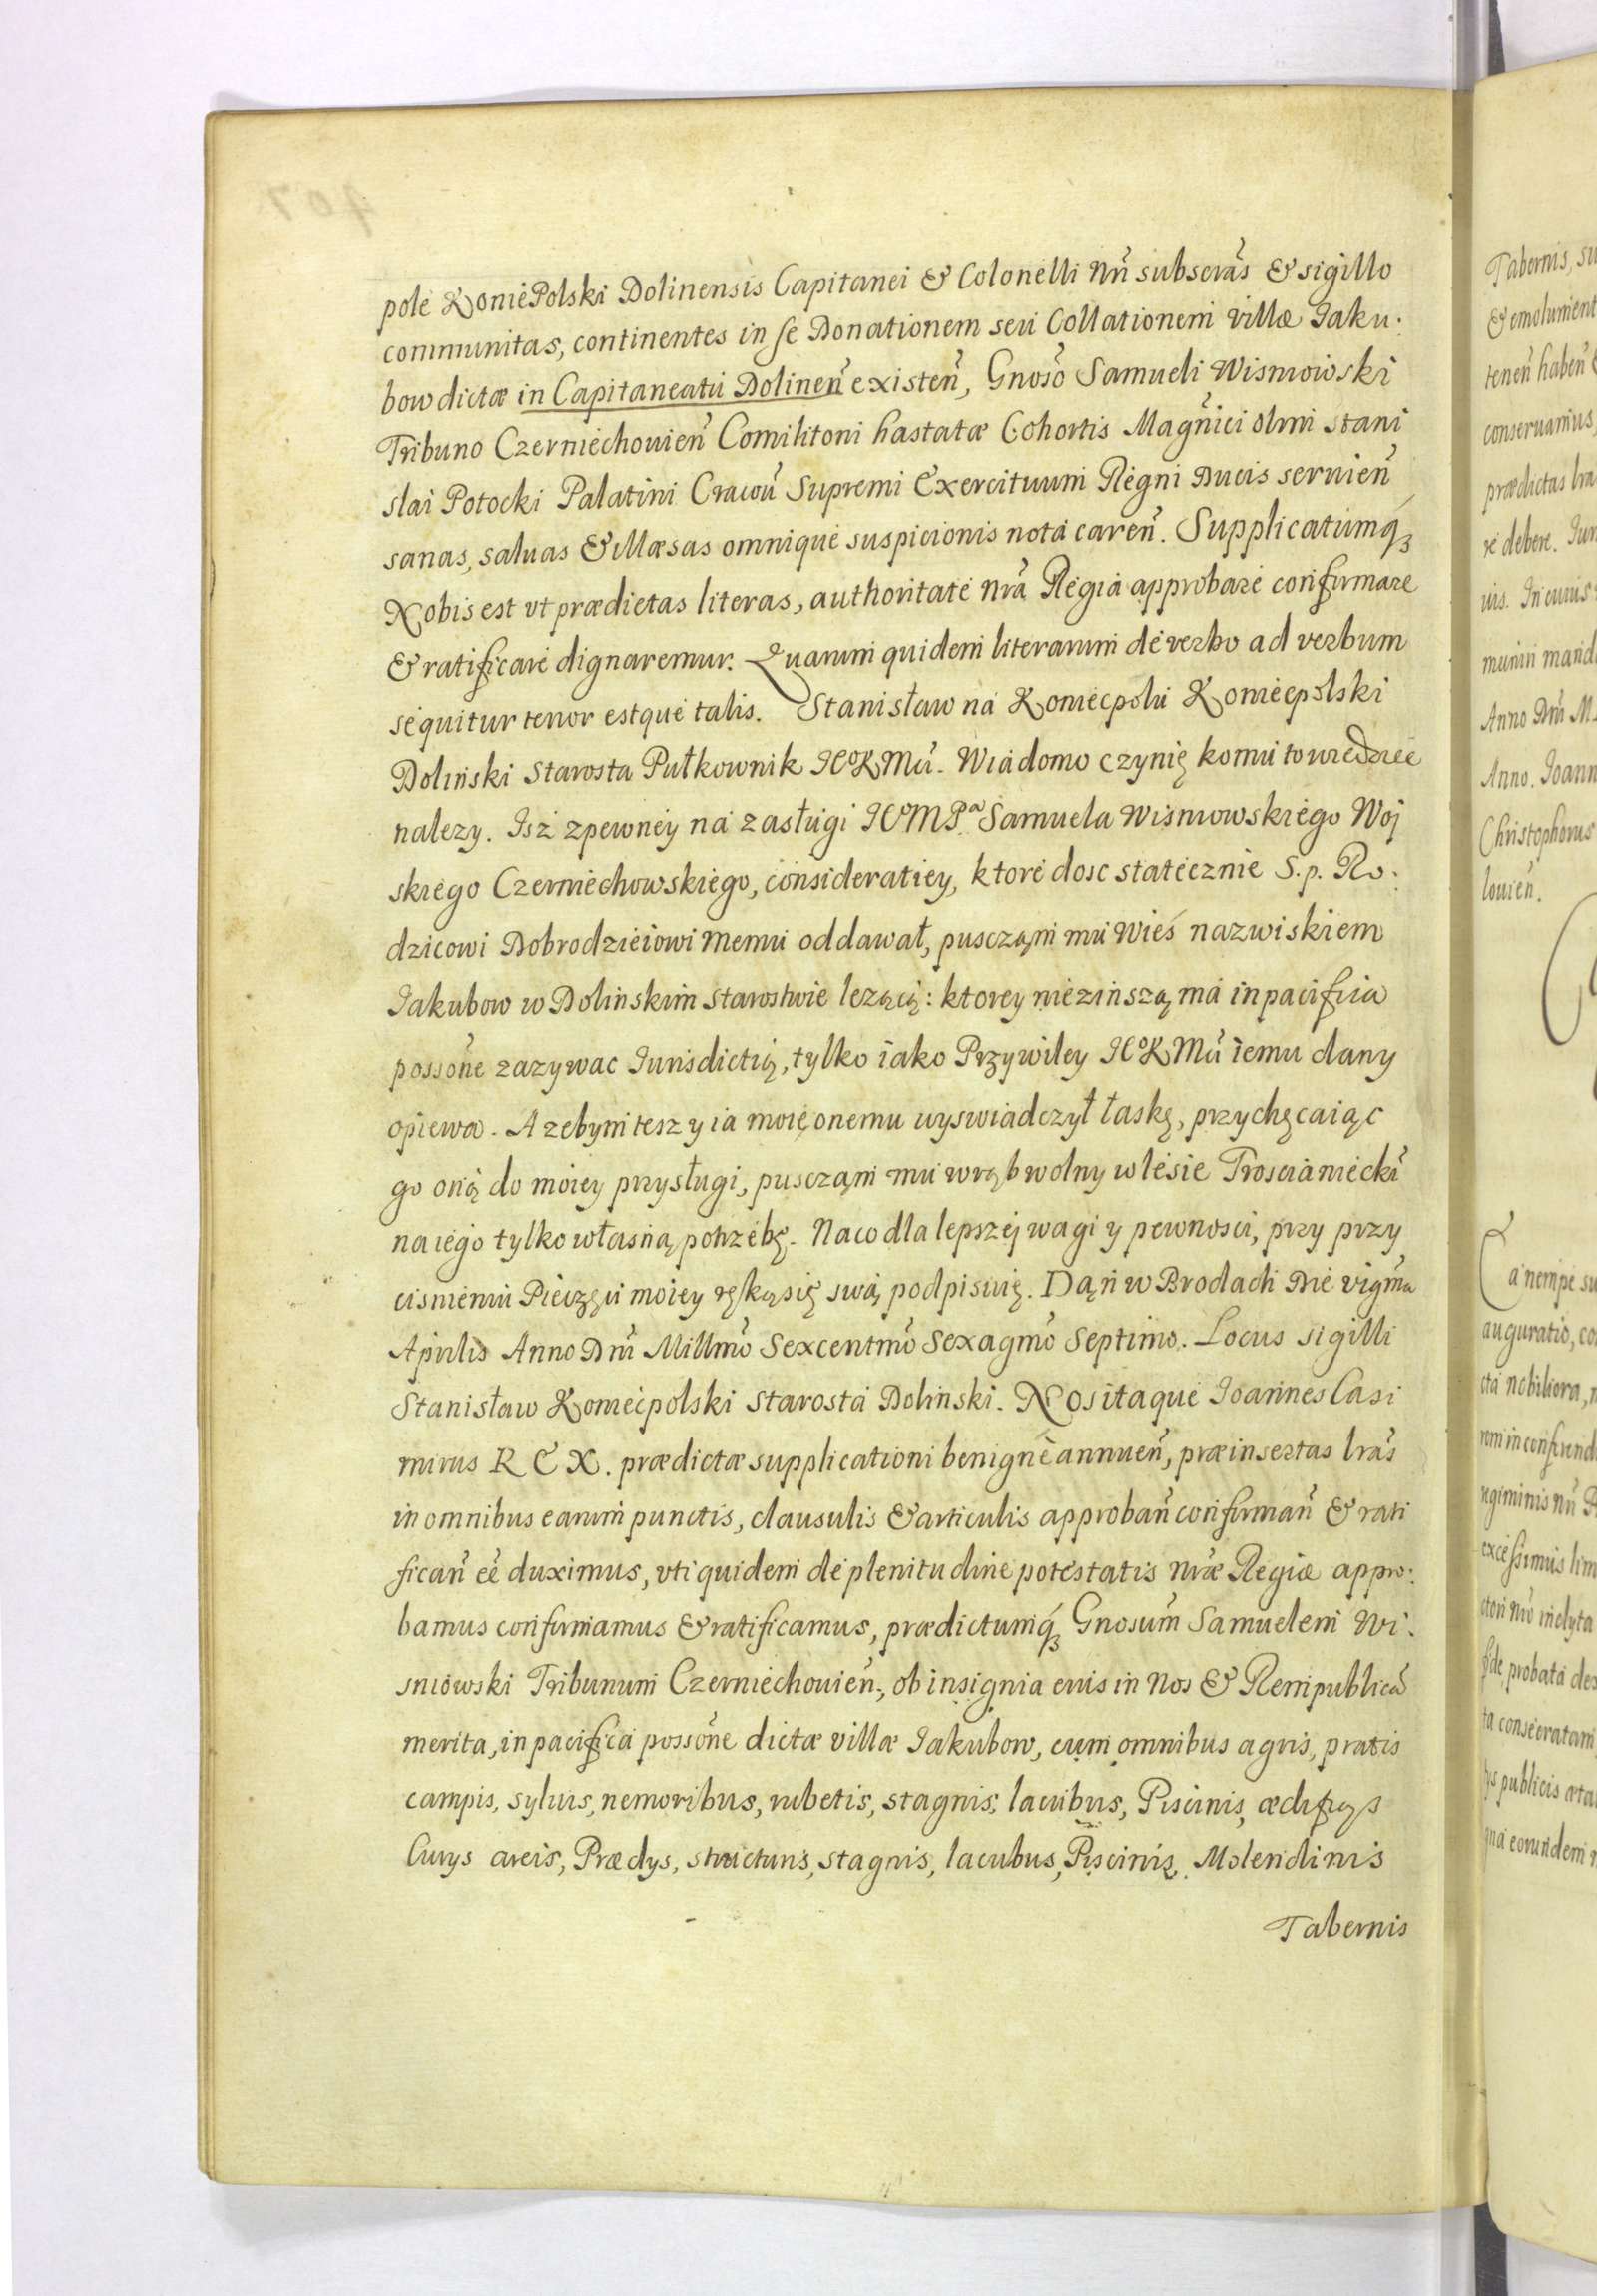 pole KoniePolski Dolinensis Capitanei & Colonelli Nrĩ subscrãs & sigillo
communitas, continentes in se Donationem seu Collationem villæ Jaku.
bow dictæ in Capitaneatu Dolineñ existeñ, Gnoso Samueli Wisniowski
Tribuno Czerniechouieñ Comilitoni hastatæ Cohortis Magñici olim Stani
slai Potocki Palatini Cracou Supremi Exercituum Regni Ducis seruieñ
sanas, saluas & illæsas omnique suspicionis nota careñ. Supplicatumq́ꝫ
Nobis est vt prædictas literas, authoritate nrã Regia approbare confirmare
& ratificare dignaremur. Quarum quidem literarum de verbo ad verbum
sequitur tenor estque talis. Stanisław na Koniecpolu Koniecpolski
Dolinski Starosta Pułkownik JKoKMci. Wiadomo czynię komu to wiedziec
nalezy. Isz zpewney na zasługi JKoMPa Samuela Wisniowskiego Woj
skiego Czerniechowskiego, consideratiey, ktore dosc statecznie S.p. Ro.
dzicowi Dobrodzieiowi memu oddawał, pusczam mu Wieś nazwiskiem
Jakubow w Dolinskim Starostwie lezącą: ktorey nie zinszą ma in pacifica
possõne zazywac Jurisdictią, tylko iako Przywiley JKoKMci iemu dany
opiewa. A zebym tesz y ia moię onemu wyswiadczył łaskę, przychęcaiąc
go onią do moiey przysługi, pusczam mu wrąb wolny w lesie Trosciánieckĩ
na iego tylko własną potrzebę. Na co dla lepszej wagi y pewnosci, przy przy
cisnieniu Pieczęci moiey ręką się swą podpisuię. Dan w Brodach Die vigm̃a
Aprilis Anno Dnĩ Millmõ Sexcentmõ Sexagmõ Septimo. Locus sigilli
Stanisław Koniecpolski Starosta Dolinski. Nos itaque Joannes Casi
mirus REX. prædictæ supplicationi benigne annueñ, præinsertas lrãs
in omnibus earum punctis, clausulis & articulis approbañ confirmañ & rati
ficañ eẽ duximus, vti quidem de plenitudine potestatis nrǣ Regiæ appro.
bamus confirmamus & ratificamus, prædictumq́ꝫ Gnosum̃ Samuelem Wi.
sniowski Tribunum Czerniechouieñ, ob insignia euis in Nos & Rempublicã
merita, in pacifica possõne dictæ villæ Jakubow, cum omnibus agris, pratis
campis, syluis, nemoribus, rubetis, stagnis, lacubus, Piscinis, ædificys
Curys areis, Prædys, structuris, stagnis, lacubus, Piscinis, Molendinis
Tabernis
Tabernis, su
& emolument
teneñ habeñ &
conseruamus,
prædictas lra
re debere. Jur
uis. In cuius
muniri mand
Anno Dnĩ M
Anno. Joann
Christophorus
louieñ.
a nempe su
auguratio, co
cta nobiliora,
rem in confund
regiminis nrĩ
excessimus lim
ctori nrõ inclyta
fide, probata de
ta consecratam
ys publicis arta
gna eorundem